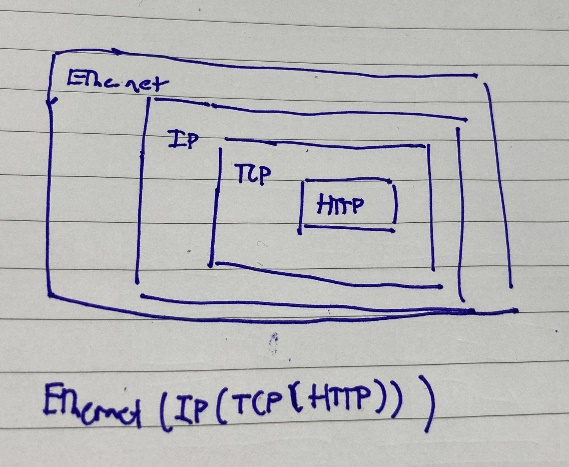 Ethernet
IP
TCP
HTTP
Ethernet (IP(TCP(HTTP)))